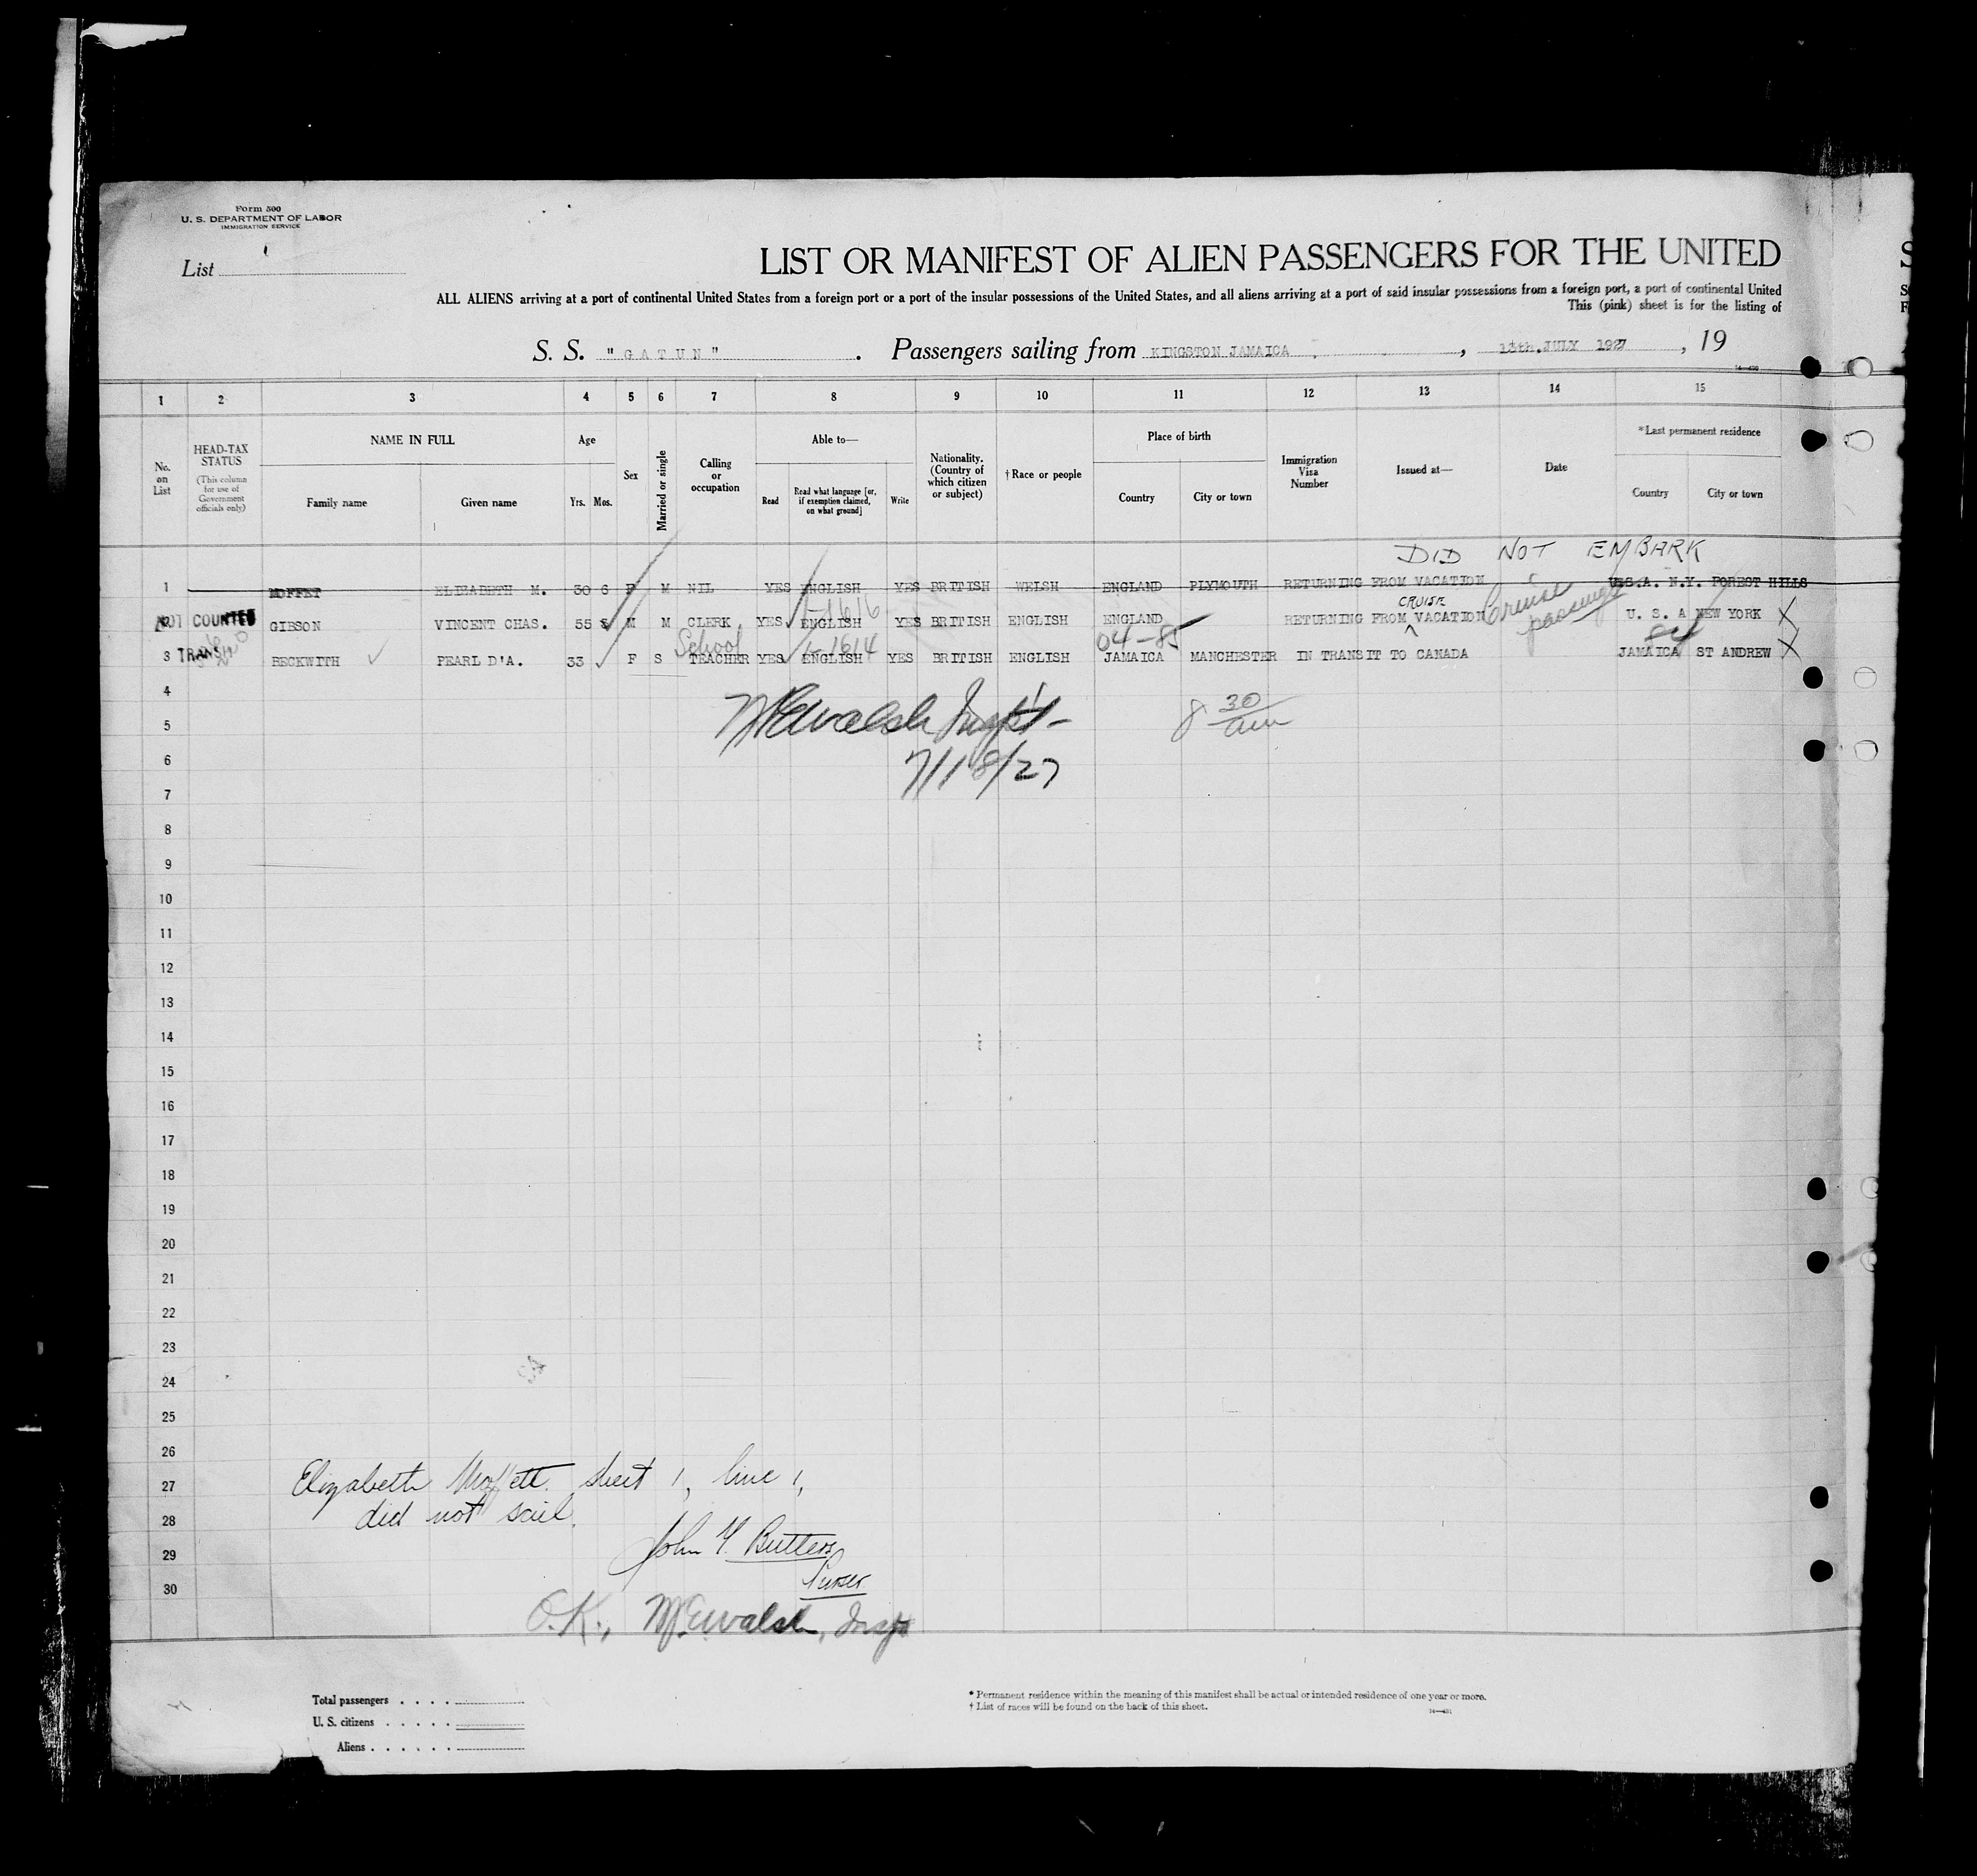 Form 500
U. S. DEPARTMENT OF LABOR
IMMIGRATION SERVICE
List 1
LIST OR MANIFEST OF ALIEN PASSENGERS FOR THE UNITED
ALL ALIENS arriving at a port of continental United States from a foreign port or a port of the insular possessions of the United States, and all aliens arriving at a port of said insular possessions from a foreign port, a port of continental United
This (pink) sheet is for the listing of
S. S. "GATUN". Passengers sailing from KINGSTON JAMAICA, JULY 1927, 19
1 2 3 4 5 6 7 8 9 10 11 12 13 14 15
No. on List
HEAD-TAX STATUS (This column for use of Government officials only)
NAME IN FULL
Family name Given name
Age
Yrs. Mos.
Sex
Married or single
Calling or occupation
Able to—
Read Read what language [or, if exemption claimed, on what ground] Write
Nationality. (Country of which citizen or subject)
† Race or people
Place of birth
Country City or town
Immigration Visa Number
Issued at—
Date
* Last permanent residence
Country City or town
DID NOT EMBARK
1 MOFFET ELIZABETH M. 30 6 F M NIL YES ENGLISH YES BRITISH WELSH ENGLAND PLYMOUTH RETURNING FROM VACATION U.S.A. N.Y. FOREST HILLS
CRUISE
NOT COUNTED GIBSON VINCENT CHAS. 55 M M CLERK YES ENGLISH YES BRITISH ENGLISH ENGLAND RETURNING FROM VACATION Cruise passenger U. S. A NEW YORK X
School 1614 04-85
3 TRANSIT BECKWITH PEARL D'A. 33 F S TEACHER YES ENGLISH YES BRITISH ENGLISH JAMAICA MANCHESTER IN TRANSIT TO CANADA JAMAICA ST ANDREW X
4
5 Walsh Insp't- 8 30 am
6 7/18/27
7
8
9
10
11
12
13
14
15
16
17
18
19
20
21
22
23
24
25
26
27 Elizabeth Moffett. sheet 1, line 1,
28 did not sail.
29 John Y. Butters
30 Purser
O.K., Walsh, Insp't
Total passengers
U. S. citizens
Aliens
* Permanent residence within the meaning of this manifest shall be actual or intended residence of one year or more.
† List of races will be found on the back of this sheet.